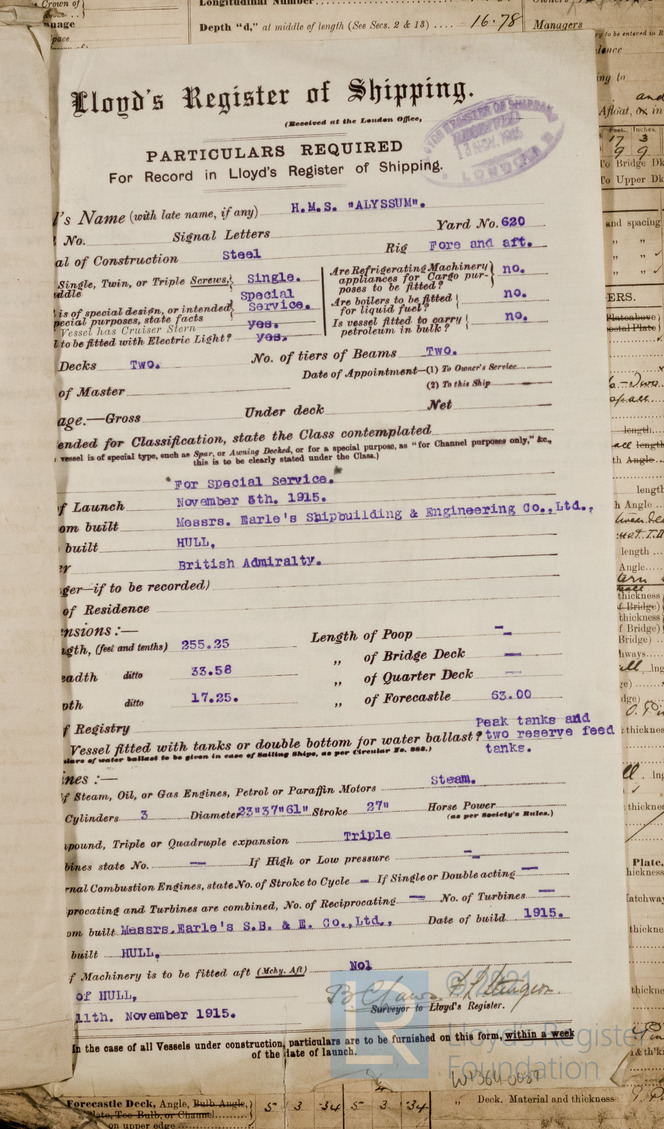 Crown of
Longitudinal Number
Depth "d," at middle of length (See Secs. 2 & 13) 16·78
Managers
Lloyd's Register of Shipping.
(Received at the London Office,
13 NOV. 1915
LONDON
PARTICULARS REQUIRED
For Record in Lloyd's Register of Shipping.
's Name (with late name, if any) H.M.S. "ALYSSUM".
No. Signal Letters Yard No. 620
al of Construction Steel Rig Fore and aft.
Single, Twin, or Triple Screws, Single.
Are Refrigerating Machinery appliances for Cargo purposes to be fitted? no.
is of special design, or intended special purposes, state facts Special Service.
Are boilers to be fitted for liquid fuel? no.
Vessel has Cruiser Stern yes.
Is vessel fitted to carry petroleum in bulk? no.
to be fitted with Electric Light? yes.
Decks Two. No. of tiers of Beams Two.
Date of Appointment—(1) To Owner's Service
of Master (2) To this Ship
age.—Gross Under deck Net
ended for Classification, state the Class contemplated
vessel is of special type, such as Spar, or Awning Decked, or for a special purpose, as "for Channel purposes only," &c.,
this is to be clearly stated under the Class.)
"For Special Service.
f Launch November 5th. 1915.
om built Messrs. Earle's Shipbuilding & Engineering Co., Ltd.,
built HULL,
er British Admiralty.
ger—if to be recorded)
of Residence
nsions:—
ngth, (feet and tenths) 255.25 Length of Poop —
eadth ditto 33.58 „ of Bridge Deck —
„ of Quarter Deck —
pth ditto 17.25. „ of Forecastle 63.00
f Registry
Vessel fitted with tanks or double bottom for water ballast? Peak tanks and two reserve feed tanks.
lars of water ballast to be given in case of Sailing Ships, as per Circular No. 688.)
ines:—
if Steam, Oil, or Gas Engines, Petrol or Paraffin Motors Steam.
Cylinders 3 Diameter 23"37"61" Stroke 27" Horse Power
(as per Society's Rules.)
pound, Triple or Quadruple expansion Triple
bines state No. — If High or Low pressure —
rnal Combustion Engines, state No. of Stroke to Cycle — If Single or Double acting —
procating and Turbines are combined, No. of Reciprocating — No. of Turbines —
om built Messrs.Earle's S.B. & E. Co.,Ltd., Date of build 1915.
built HULL,
f Machinery is to be fitted aft (Mchy. Aft) No1
of HULL,
11th. November 1915.
Surveyor to Lloyd's Register.
© 2021
Lloyd's Register
Foundation
In the case of all Vessels under construction, particulars are to be furnished on this form, within a week
of the date of launch.
Forecastle Deck, Angle, Bulb Angle, 5 3 ·34 5 3 ·34
Plate, Tee Bulb, or Channel
on upper edge
Deck. Material and thickness